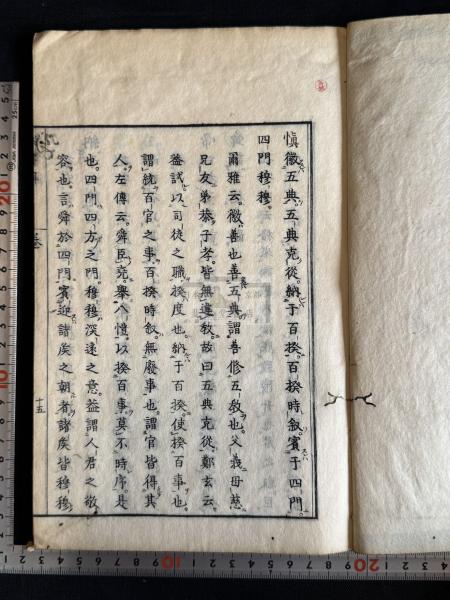 慎徽五典五典克從納于百揆百揆時敘賓于四門
四門穆穆
爾雅云徽善也善五典謂善修五敎也父義母慈
兄友弟恭子孝皆無違敎故曰五典克從鄭玄云
蓋試以司徒之職揆度也納于百揆使揆百事也
謂統百官之事百揆時敘無廢事也謂官皆得其
人左傳云舜臣堯舉八愷以揆百事莫不時序是
也四門四方之門穆穆深遠之意蓋謂人君之敬
容也言舜於四門賓迎諸矦之朝者諸矦皆穆穆
十五